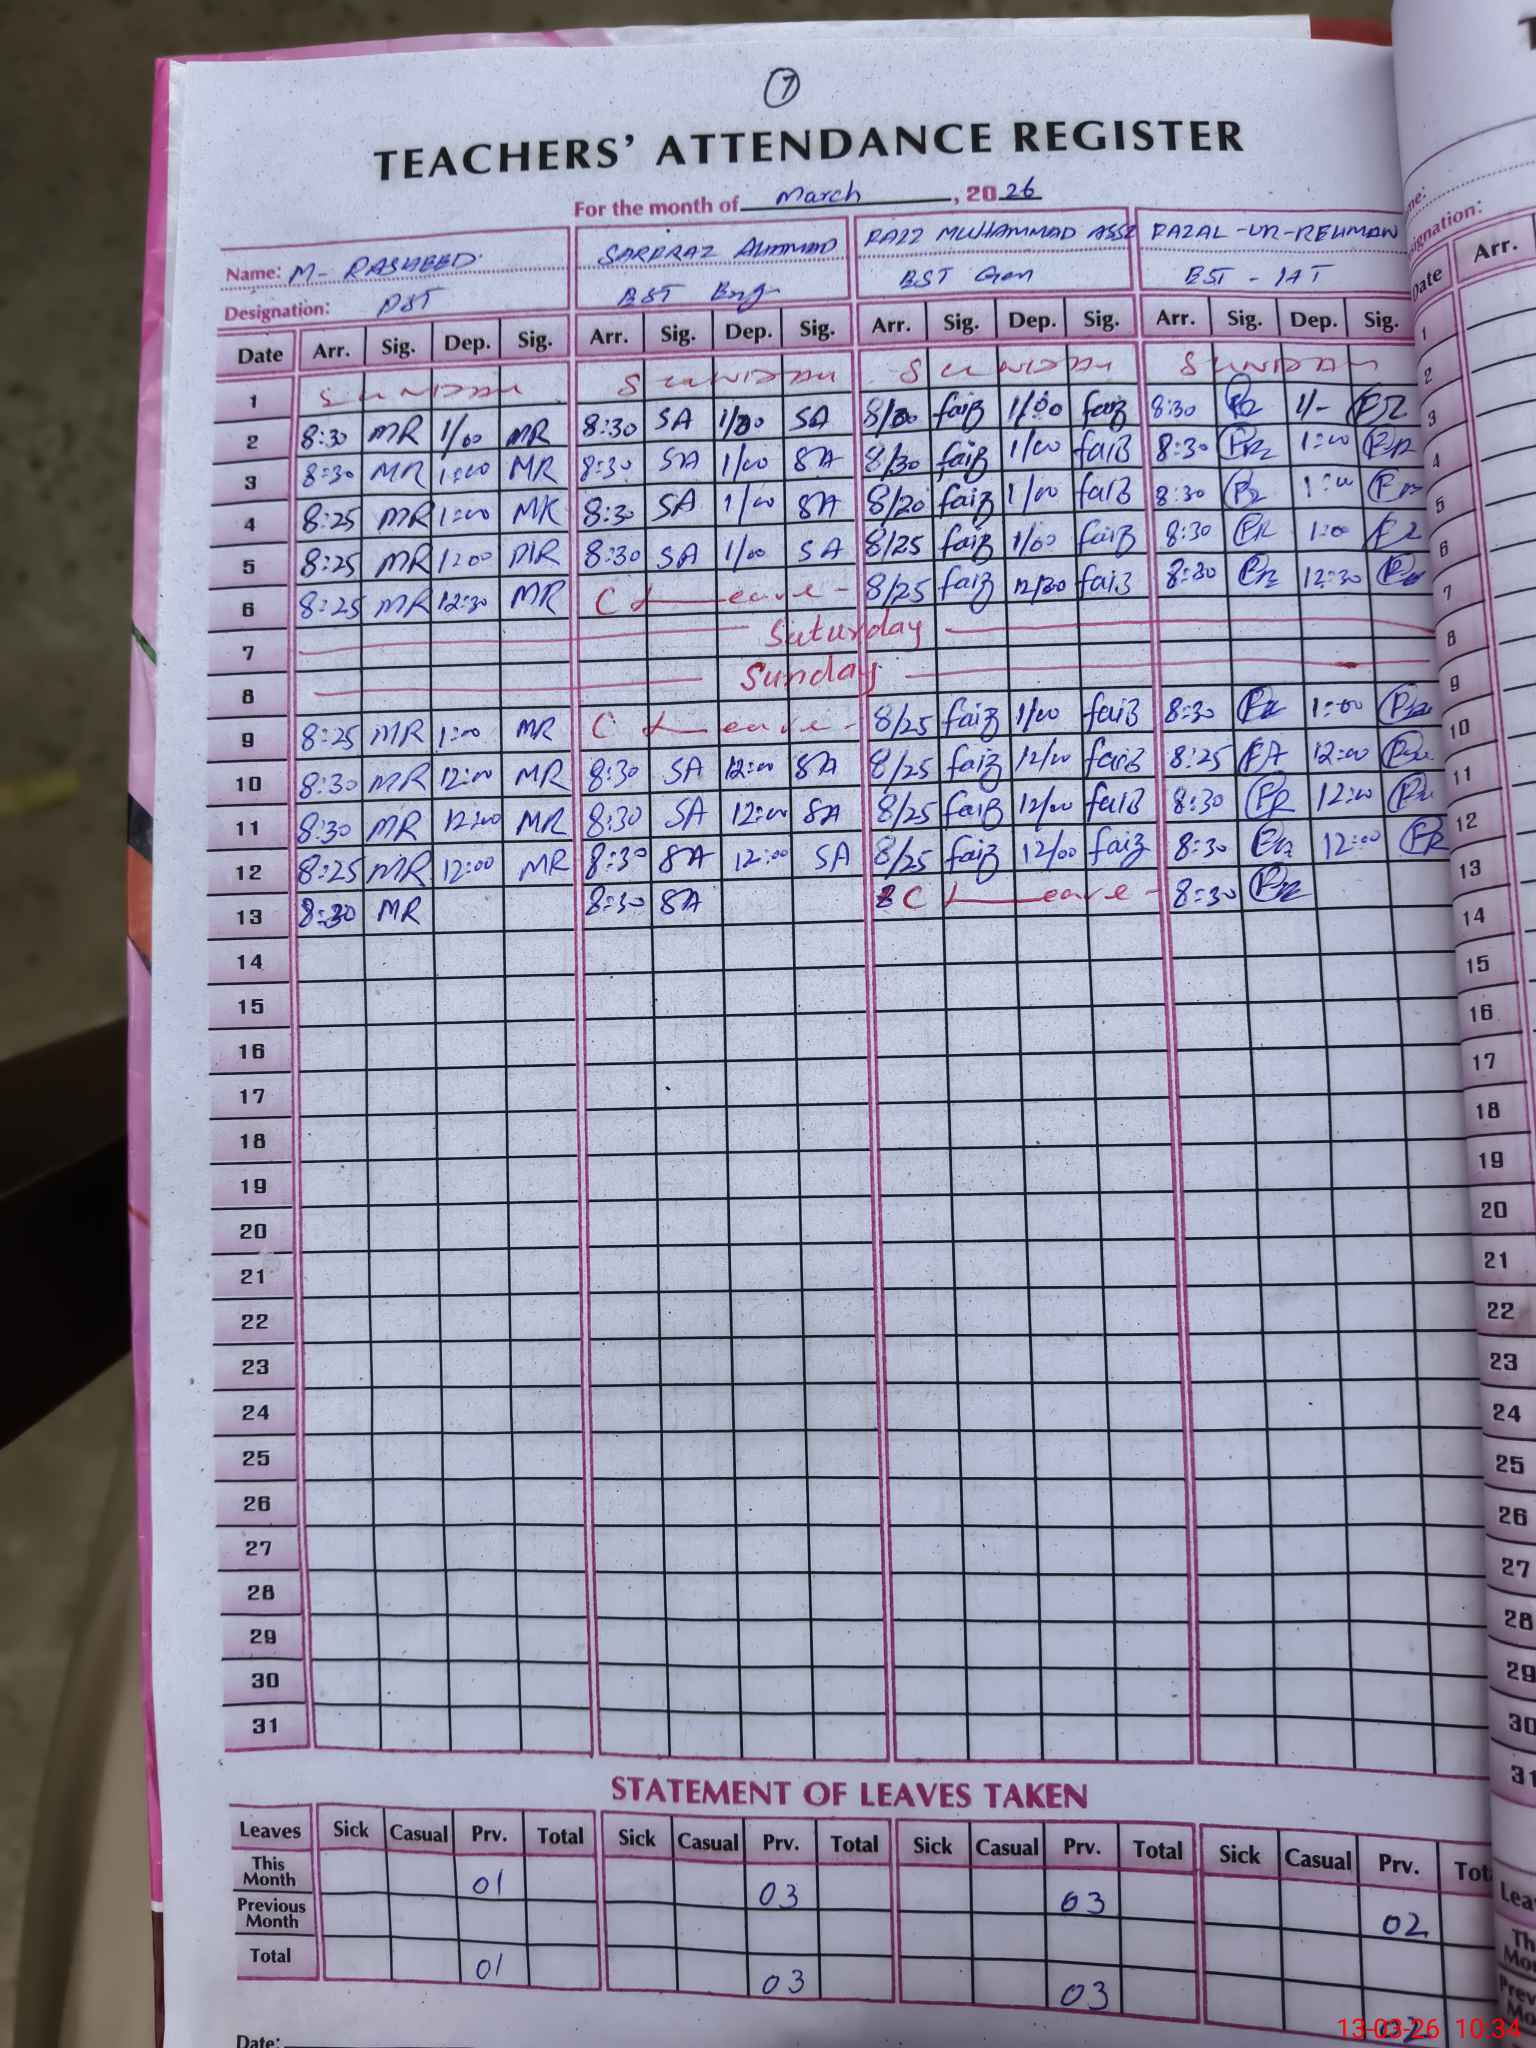 7
TEACHERS' ATTENDANCE REGISTER
For the month of March, 2026
Name: M- RASHEED SARFRAZ AHMMAD FAIZ MUHAMMAD FAZAL-UR-REHMAN
Designation: EST EST - IAT
Date Arr. Sig. Dep. Sig. Arr. Sig. Dep. Sig. Arr. Sig. Dep. Sig. Arr. Sig. Dep. Sig.
1 SUNDAY SUNDAY SUNDAY SUNDAY
2 8:30 MR 1/00 MR 8:30 SA SA faiz faiz 8:30 1/-
3 8:30 MR 1:00 MR 8:30 SA 1/00 SA 8/30 faiz 1/00 faiz 8:30 1:00
4 8:25 MR 1:00 MR 8:30 SA 1/00 SA 8/20 faiz 1/00 faiz 8:30 1:00
5 8:25 MR 1:00 MR 8:30 SA 1/00 SA 8/25 faiz 1/00 faiz 8:30 1:00
6 8:25 MR 12:30 MR C Leave 8/25 faiz 12/30 faiz 8:30 12:30
7 Saturday
8 Sunday
9 8:25 MR 1:00 MR C Leave 8/25 faiz 1/00 faiz 8:30 1:00
10 8:30 MR 12:00 MR 8:30 SA 12:00 SA 8/25 faiz 12/00 faiz 8:25 12:00
11 8:30 MR 12:00 MR 8:30 SA 12:00 SA 8/25 faiz 12/00 faiz 8:30 12:00
12 8:25 MR 12:00 MR 8:30 SA 12:00 SA 8/25 faiz 12/00 faiz 8:30 12:00
13 8:30 MR 8:30 SA C Leave 8:30
14
15
16
17
18
19
20
21
22
23
24
25
26
27
28
29
30
31
STATEMENT OF LEAVES TAKEN
Leaves Sick Casual Prv. Total Sick Casual Prv. Total Sick Casual Prv. Total Sick Casual Prv.
This Month 01 03 03 02
Previous Month
Total 01 03 03
Date:
Arr.
Date
1
2
3
4
5
6
7
8
9
10
11
12
13
14
15
16
17
18
19
20
21
22
23
24
25
26
27
28
29
30
31
13-03-26 10:34